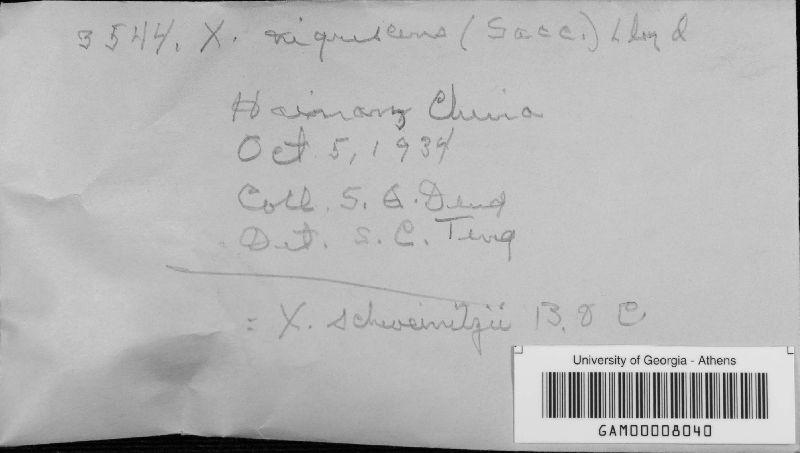 3544. X. nigrescens (Sacc.) Lloyd
Hainang China
Oct 5, 1934
Coll. S. Q. Deng
Det. S. C. Teng
= X. schweinitzii B. & C
University of Georgia - Athens
GAM00008040